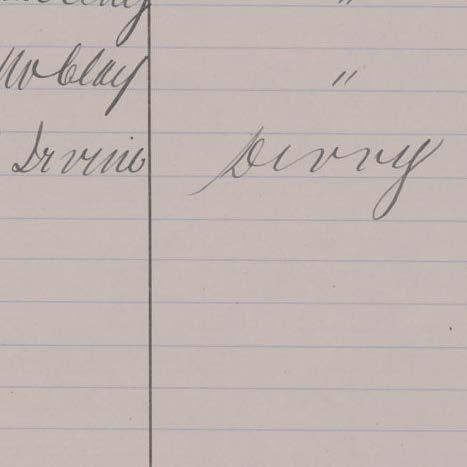 McClay "
Irvine Derry